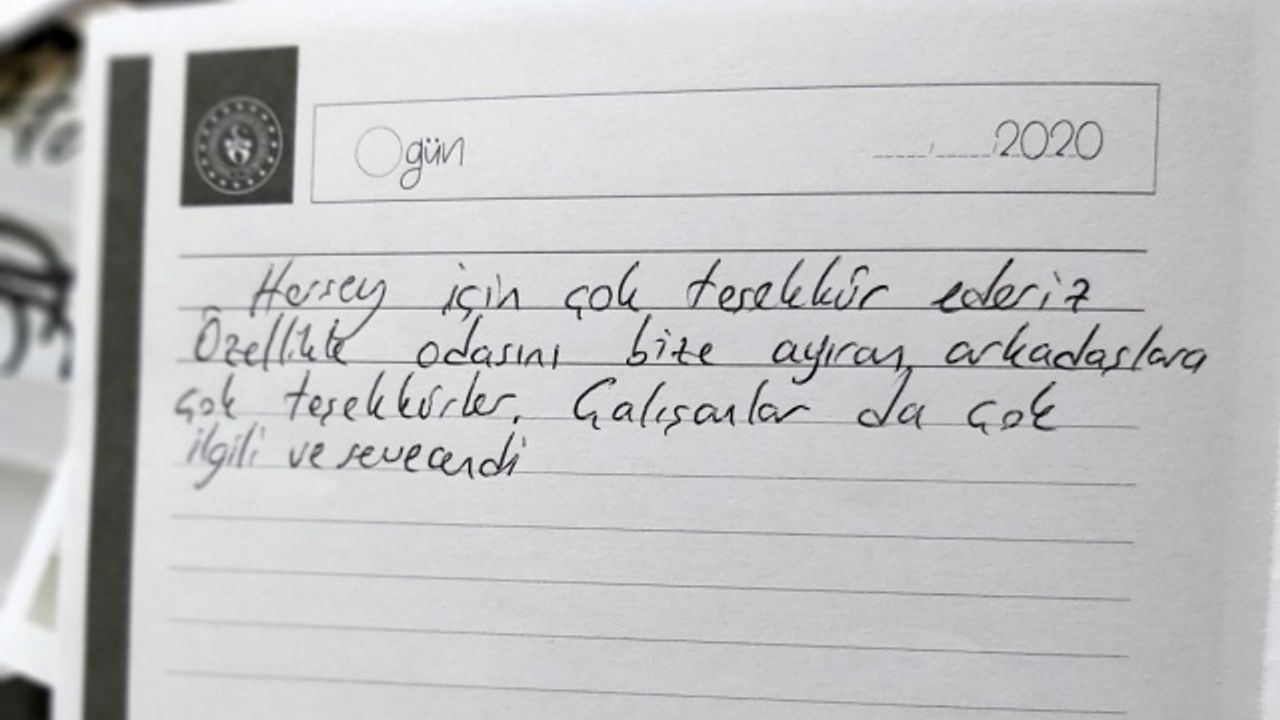 Ogün ....../......2020
Herşey için çok teşekkür ederiz
Özellikle odasını bize ayıran arkadaşlara
çok teşekkürler. Çalışanlar da çok
ilgili ve sevecendi